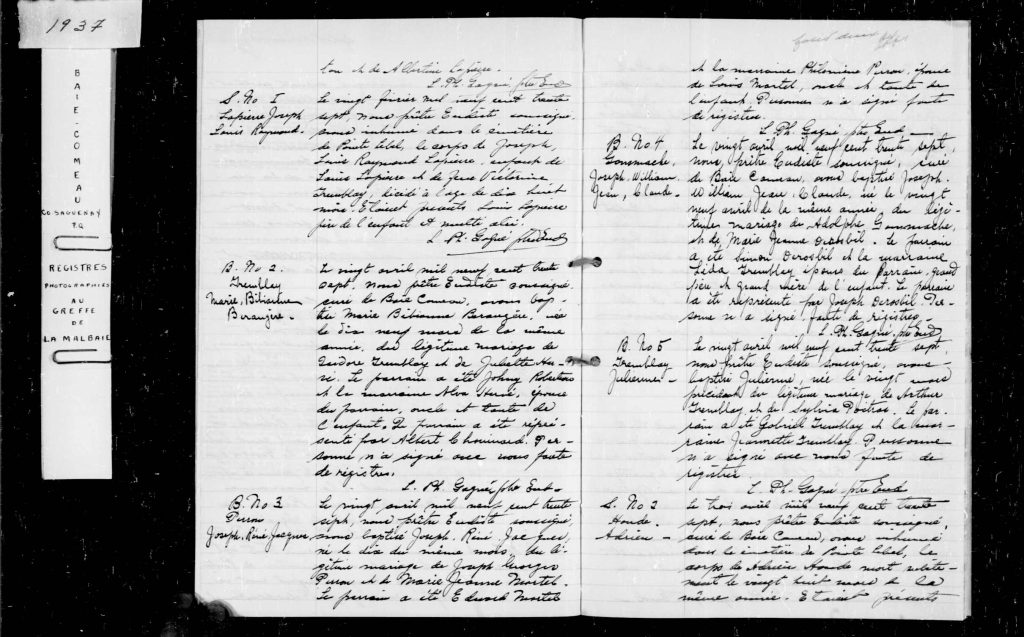 1937
BAIE-COMEAU
CO. SAGUENAY
P.Q
REGISTRES
PHOTOGRAPHIES
AU
GREFFE
DE
LA MALBAIE
ton et de Albertine Lapierre.
L. Ph. Gagné, ptre Eud
S. No 1
Lapierre Joseph
Louis Raymond.
Le vingt février mil neuf cent trente
sept, nous prêtre Eudiste, soussigné,
avons inhumé dans le cimetière
de Pointe Lebel, le corps de Joseph,
Louis Raymond Lapierre, enfant de
Louis Lapierre et de Jeanne Victorine
Tremblay, décédé à l'age de dix huit
mois. Etaient présents Louis Lapierre
père de l'enfant et
L. Ph. Gagné ptre Eud
B. No 2.
Tremblay
Marie, Bibianne
Berangère -
Le vingt avril mil neuf cent trente
sept, nous prêtre Eudiste soussigné,
curé de Baie Comeau, avons bap-
tisé Marie Bibianne Berangère, née
le dix neuf mars de la même
année, du légitime mariage de
Isidore Tremblay et de Juliette Hu-
. Le parrain a été Johny Robertson
et la marraine Alva , épouse
du parrain, oncle et tante de
l'enfant. Le parrain a été repré-
senté par Albert Chouinard. Per-
sonne n'a signé avec nous faute
de régistres.
L. Ph. Gagné, ptre Eud -
B. No 3
Perron
Joseph, Réné Jacques,
Le vingt avril mil neuf cent trente
sept, nous prêtre Eudiste soussigné,
avons baptisé Joseph, Réné, Jacques,
né le dix du même mois, du lé-
gitime mariage de Joseph Georges
Perron et de Marie Jeanne Martel.
Le parrain a été Edward Martel
feuil deux
et la marraine Philomène Perron, épouse
de Louis Martel, oncle et tante de
l'enfant. Personne n'a signé faute
de régistre.
L. Ph. Gagné ptre Eud, -
B. No 4
Joseph, William-
Jean, Claude. -
Le vingt avril mil neuf cent trente sept,
nous, prêtre Eudiste soussigné, curé
de Baie Comeau, avons baptisé Joseph.
William Jean. Claude, né le vingt
neuf avril de la même année, du légi-
time mariage de Adolphe
et de, Marie Jeanne Derosbil. Le parrain
a été Simon Derosbil et la marraine
Lida Tremblay épouse du parrain, grand
père et grand mère de l'enfant. Le parrain
a été représenté par Joseph Derosbil. Per-
sonne n'a signé faute de régistres. -
L. Ph. Gagné ptre Eud
B. No 5
Tremblay
Julienne -
Le vingt avril mil neuf cent trente sept,
nous prêtre Eudiste soussigné, avons
baptisé Julienne, née le vingt mars
précédent du légitime mariage de Arthur
Tremblay et de Sylvia Poitras. Le par-
rain a été Gabriel Tremblay et la mar-
raine Jeannette Tremblay. Personne
n'a signé avec nous faute de
régistre
L. Ph. Gagné, ptre Eud
S. No 2
Houde.
Adrien -
Le trois avril mil neuf cent trente
sept, nous prêtre Eudiste soussigné,
curé de Baie Comeau, avons inhumé
dans le cimetière de Pointe Lebel, le
corps de Adrien Houde mort
ment le vingt huit mars de la
même année. Etaient présents